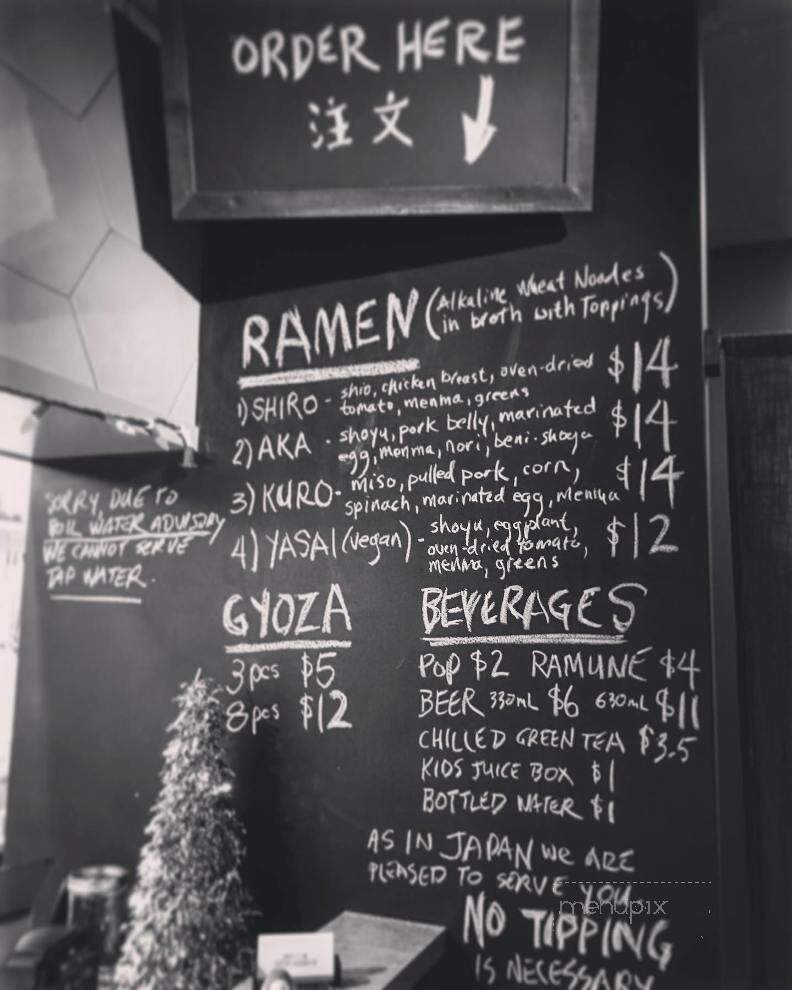 ORDER HERE
注文
RAMEN (Alkaline Wheat Noodles
in broth with Toppings)
1) SHIRO - shio, chicken breast, oven-dried $14
tomato, menma, greens
2) AKA - shoyu, pork belly, marinated $14
egg, menma, nori, beni-shoga
3) KURO - miso, pulled pork, corn, $14
spinach, marinated egg, menma
4) YASAI (vegan) - shoyu, eggplant, $12
oven-dried tomato,
menma, greens
SORRY DUE TO
BOIL WATER ADVISORY
WE CANNOT SERVE
TAP WATER.
GYOZA
3pcs $5
8pcs $12
BEVERAGES
POP $2 RAMUNE $4
BEER 330mL $6 630mL $11
CHILLED GREEN TEA $3.5
KIDS JUICE BOX $1
BOTTLED WATER $1
AS IN JAPAN WE ARE
PLEASED TO SERVE YOU.
menupix
NO TIPPING
IS NECESSARY